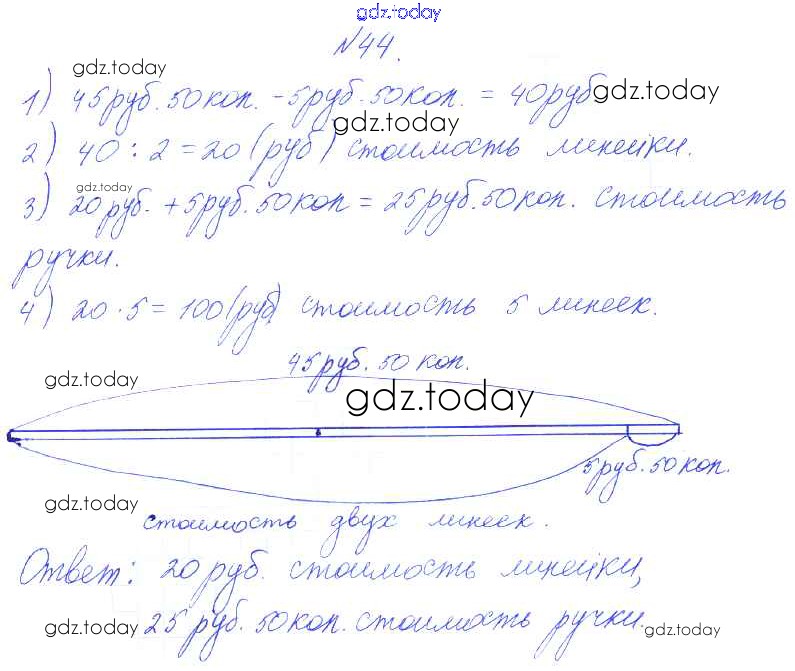 gdz.today
№44.
gdz.today
1) 45руб. 50коп. - 5руб. 50коп. = 40руб gdz.today
gdz.today
2) 40 : 2 = 20 (руб) стоимость линейки.
gdz.today
3) 20руб. + 5руб. 50коп = 25руб. 50коп. стоимость
ручки.
4) 20 · 5 = 100 (руб) стоимость 5 линеек.
45руб. 50 коп.
gdz.today
gdz.today
5руб. 50коп.
gdz.today
стоимость двух линеек.
Ответ: 20руб. стоимость линейки,
25 руб. 50коп. стоимость ручки.
gdz.today
gdz.today